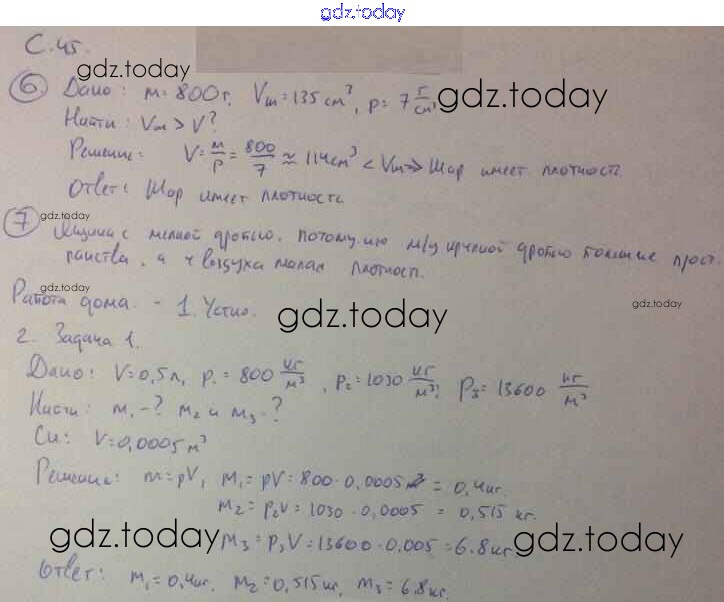 gdz.today
С.45.
gdz.today
6 Дано: m=800г, Vш=135 см³, ρ=7 г/см³, gdz.today
Найти: Vш > V?
Решение: V = m/ρ = 800/7 ≈ 114 см³ < Vш ⇒ Шар имеет
Ответ: Шар имеет
gdz.today
7 Ящик с мелкой дробью, потому что м/у крупной дробью больше прост
ранства, а у воздуха малая плотност.
gdz.today
Работа дома. - 1. Устно.
gdz.today
gdz.today
2. Задача 1.
Дано: V=0,5л, ρ₁=800 кг/м³, ρ₂=1030 кг/м³, ρ₃=13600 кг/м³
Найти: m₁-? m₂ и m₃-?
Си: V=0,0005 м³
Решение: m=ρV, m₁=ρV=800·0,0005 = 0,4кг.
m₂=ρ₂V=1030·0,0005 = 0,515 кг.
gdz.today m₃=ρ₃V=13600·0.005=6.8кг gdz.today
Ответ: m₁=0,4кг. m₂=0,515кг, m₃=6.8кг.